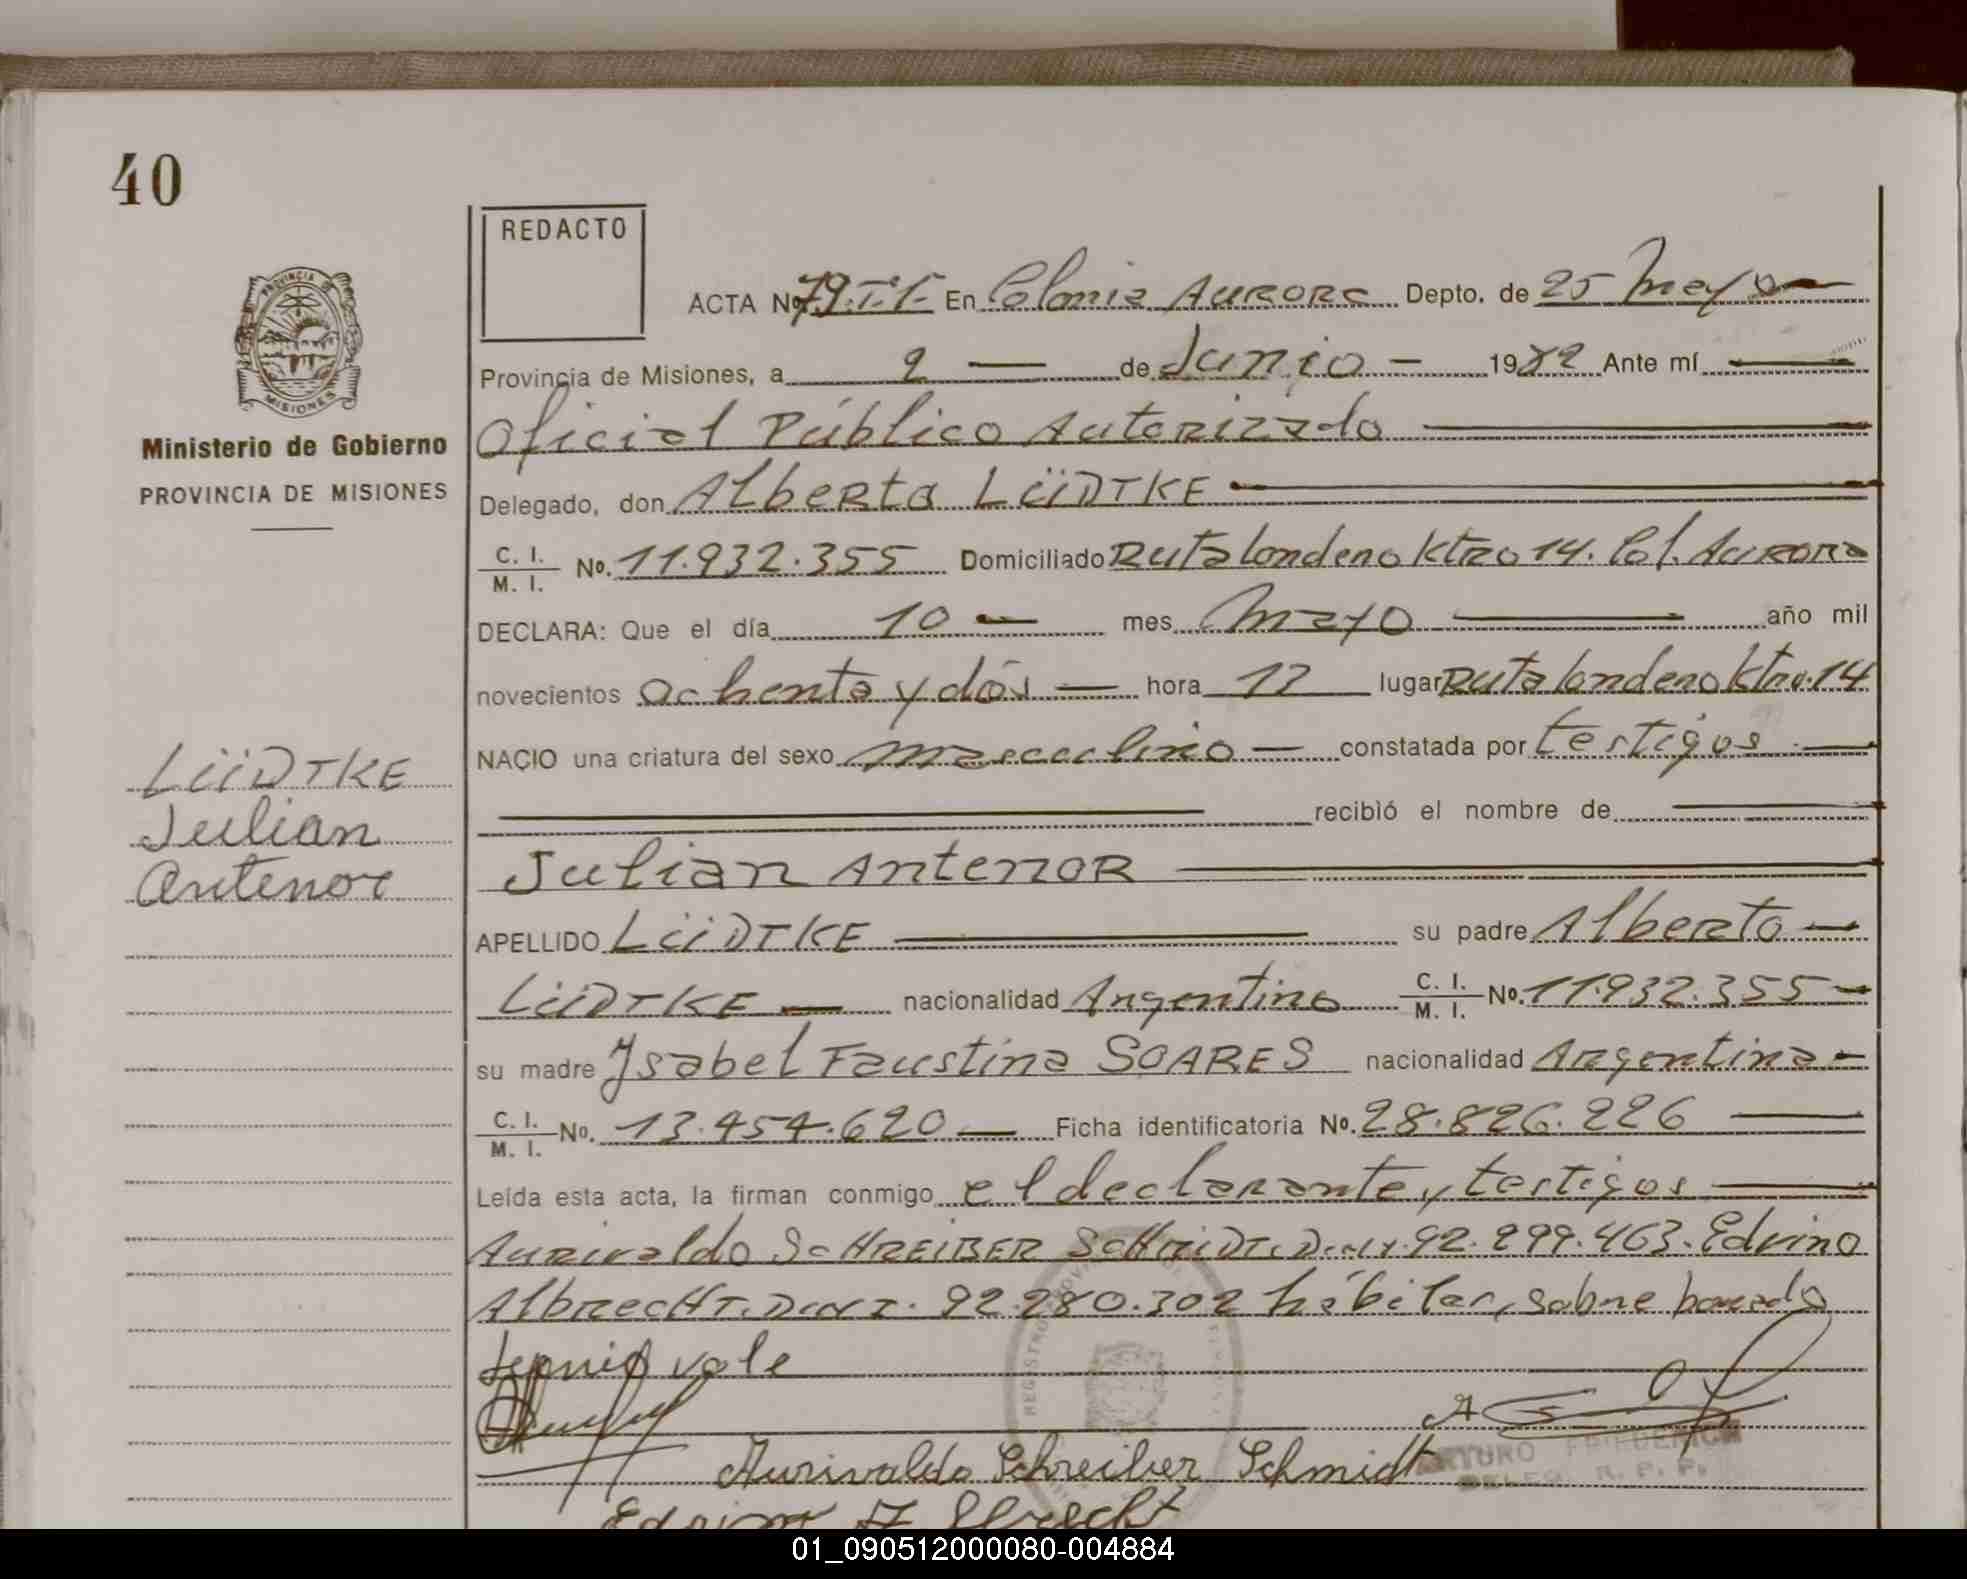 40
REDACTO
ACTA Nº 79.T.1.- En Colonia Aurora Depto. de 25 Mayo
Provincia de Misiones, a 2 de Junio - 1982 Ante mí
Oficial Público Autorizado
Delegado, don Alberto LÜDTKE
C. I.
M. I. Nº. 11.932.355 Domiciliado Ruta londero Ktro 14. Col. Aurora
DECLARA: Que el día 10 mes Mayo año mil
novecientos ochenta y dós hora 12 lugar Ruta londero Ktro.14
NACIO una criatura del sexo masculino constatada por testigos
recibió el nombre de
Julian Antenor
APELLIDO LÜDTKE su padre Alberto
LÜDTKE nacionalidad Argentino C. I.
M. I. Nº. 11.932.355
su madre Ysabel Faustina SOARES nacionalidad Argentina
C. I.
M. I. Nº. 13.454.620 Ficha identificatoria Nº. 28.826.226
Leída esta acta, la firman conmigo el declarante y testigos
Aurivaldo ScHREIBER ScHmiDT. D.N.I. 92.299.463. Edvino
AlbrecHT. D.N.I. 92.280.302 hábiles, sobre borrado
Junio vale
Aurivaldo Schreiber Schmidt
ARTURO FRIEDERICH
DELEG. R. P. P.
Edvino Albrecht
PROVINCIA DE
MISIONES
Ministerio de Gobierno
PROVINCIA DE MISIONES
LÜDTKE
Julian
Antenor
01_090512000080-004884